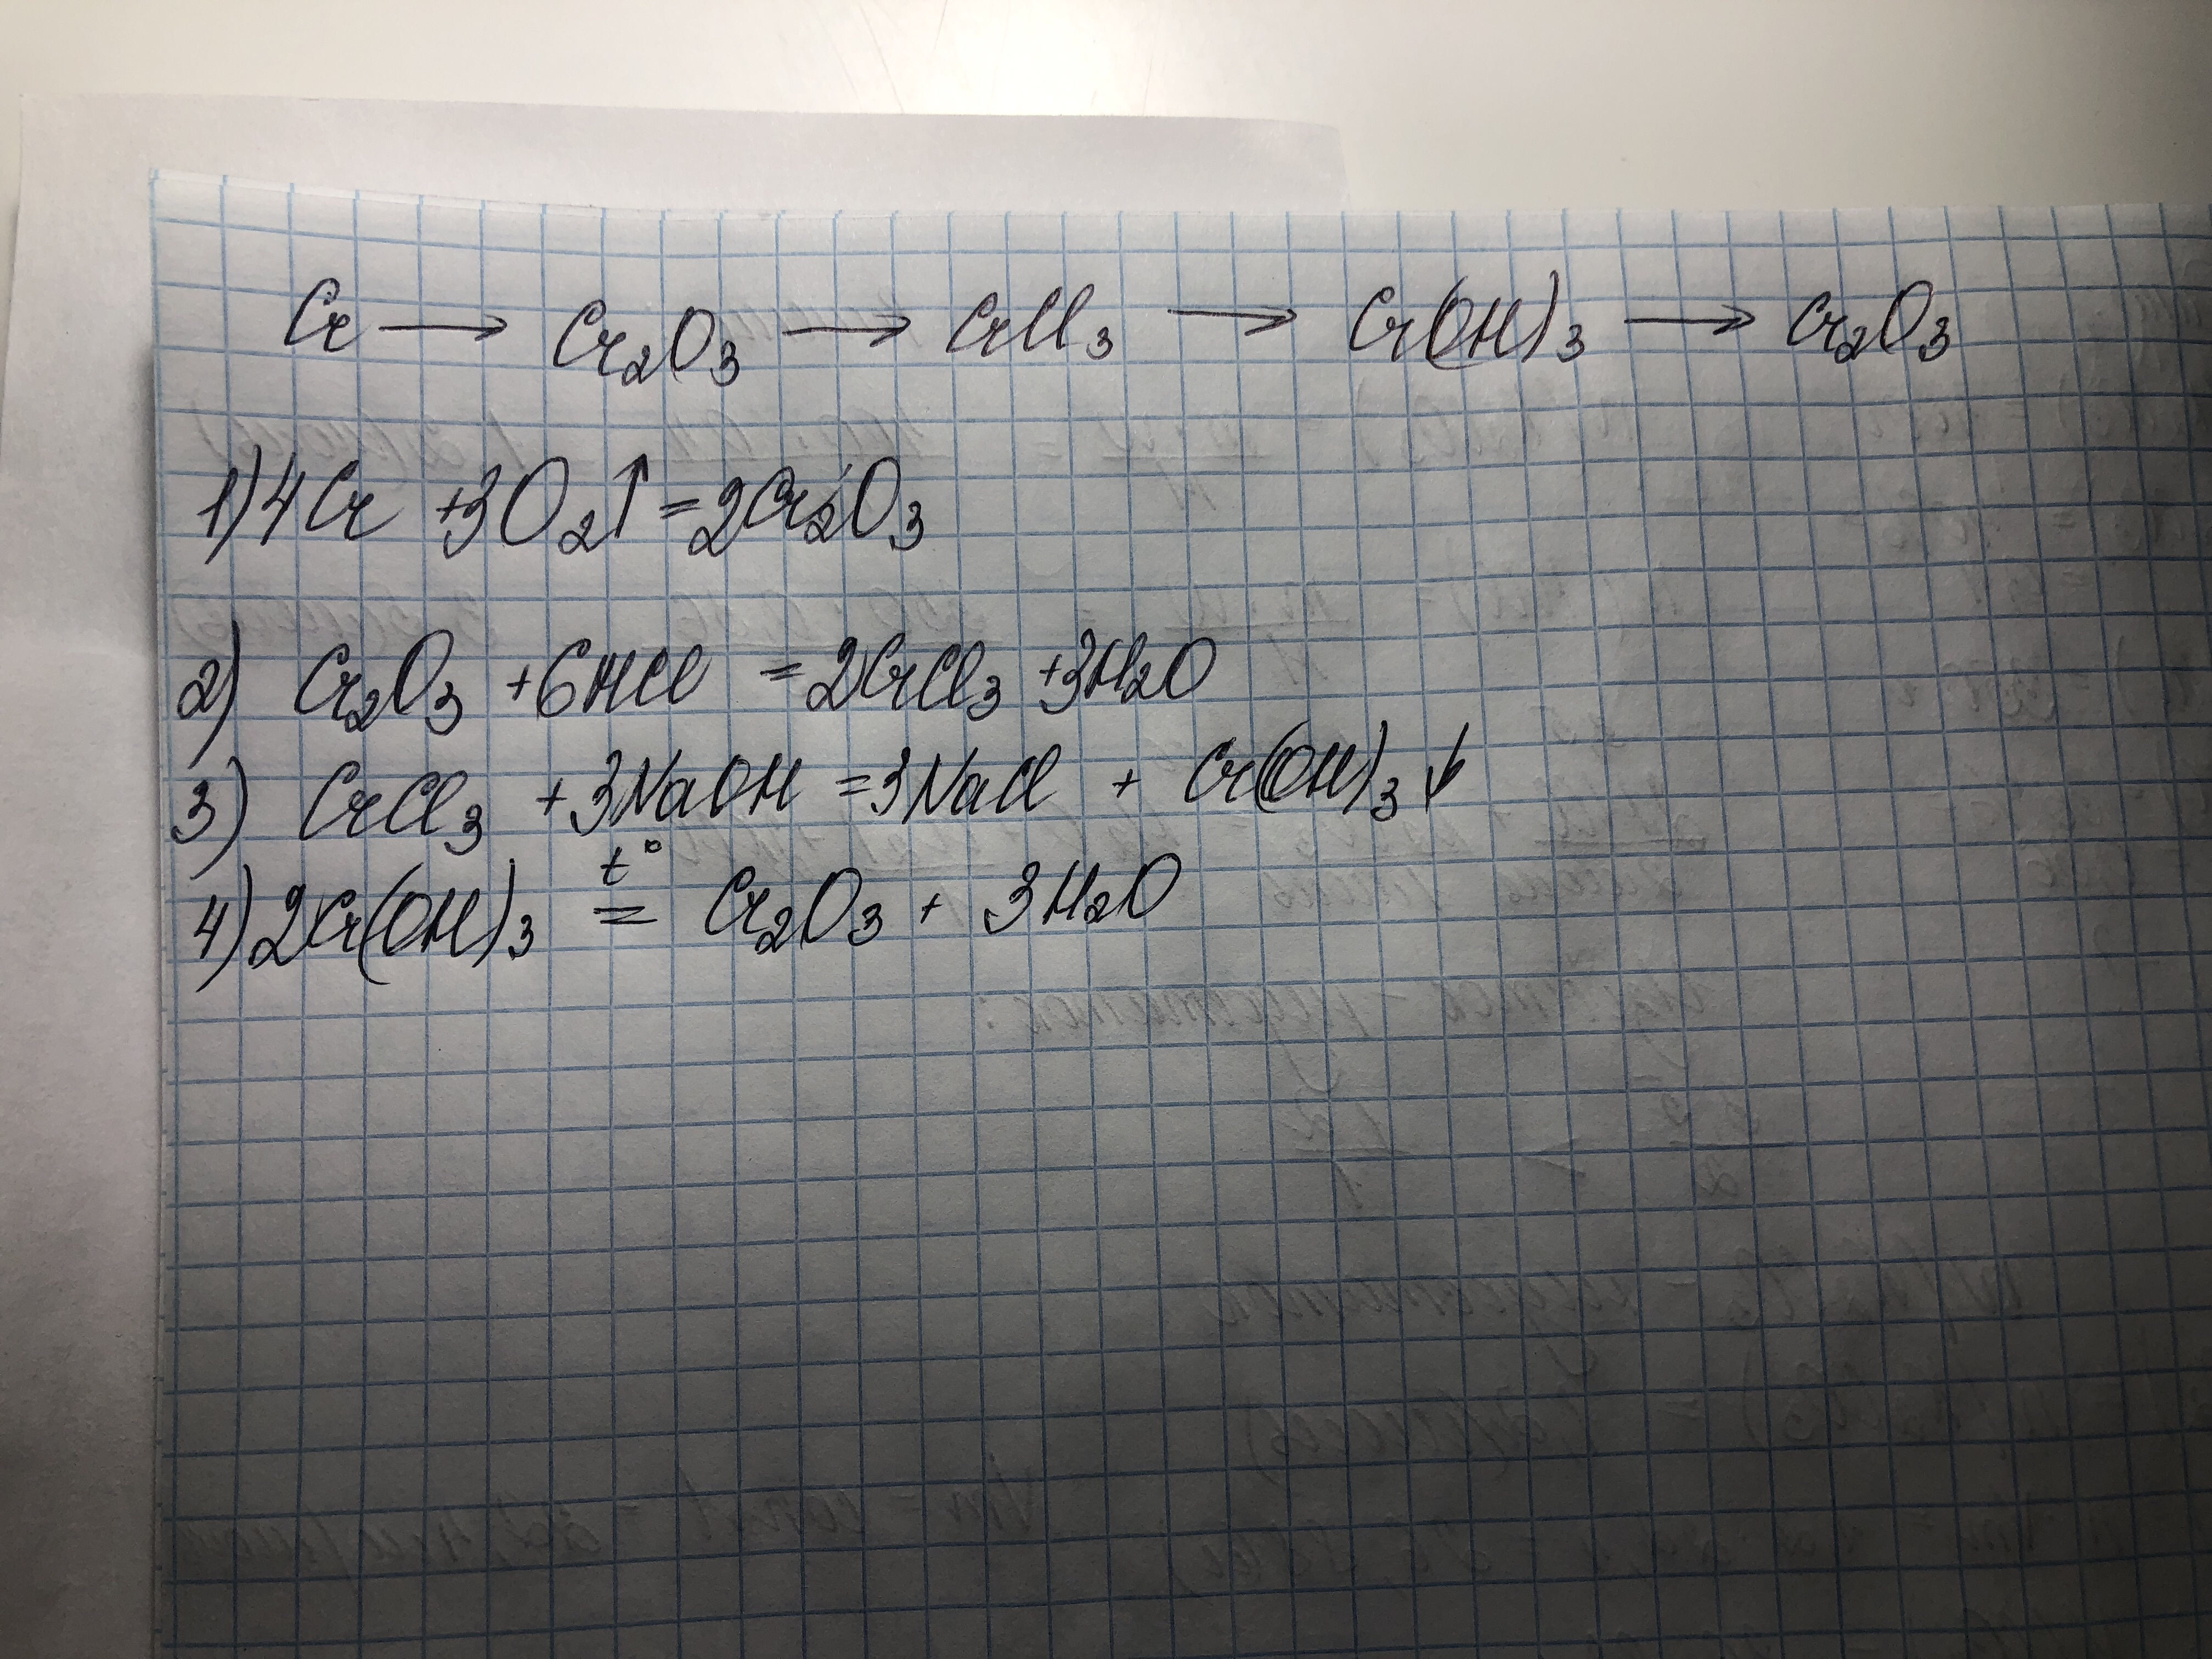 Cr → Cr₂O₃ → CrCl₃ → Cr(OH)₃ → Cr₂O₃
1) 4Cr + 3O₂↑ = 2Cr₂O₃
2) Cr₂O₃ + 6HCl = 2CrCl₃ + 3H₂O
3) CrCl₃ + 3NaOH = 3NaCl + Cr(OH)₃↓
4) 2Cr(OH)₃ t°= Cr₂O₃ + 3H₂O